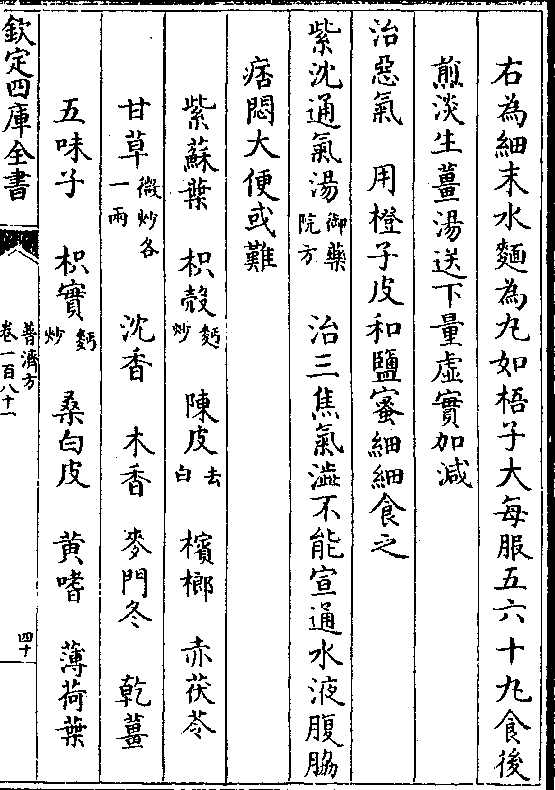 右為細末水麵為丸如梧子大每服五六十丸食後
煎淡生薑湯送下量虛實加減
治惡氣　用橙子皮和鹽蜜細細食之
紫沈通氣湯御藥院方　治三焦氣澁不能宣通水液腹脇
痞悶大便或難
紫蘇葉　枳殼麫炒　陳皮去白　檳榔　赤茯苓
甘草微炒各一兩　沈香　木香　麥門冬　乾薑
五味子　枳實麫炒　桑白皮　黄嗜　薄荷葉
欽定四庫全書　普濟方卷一百八十一　四十